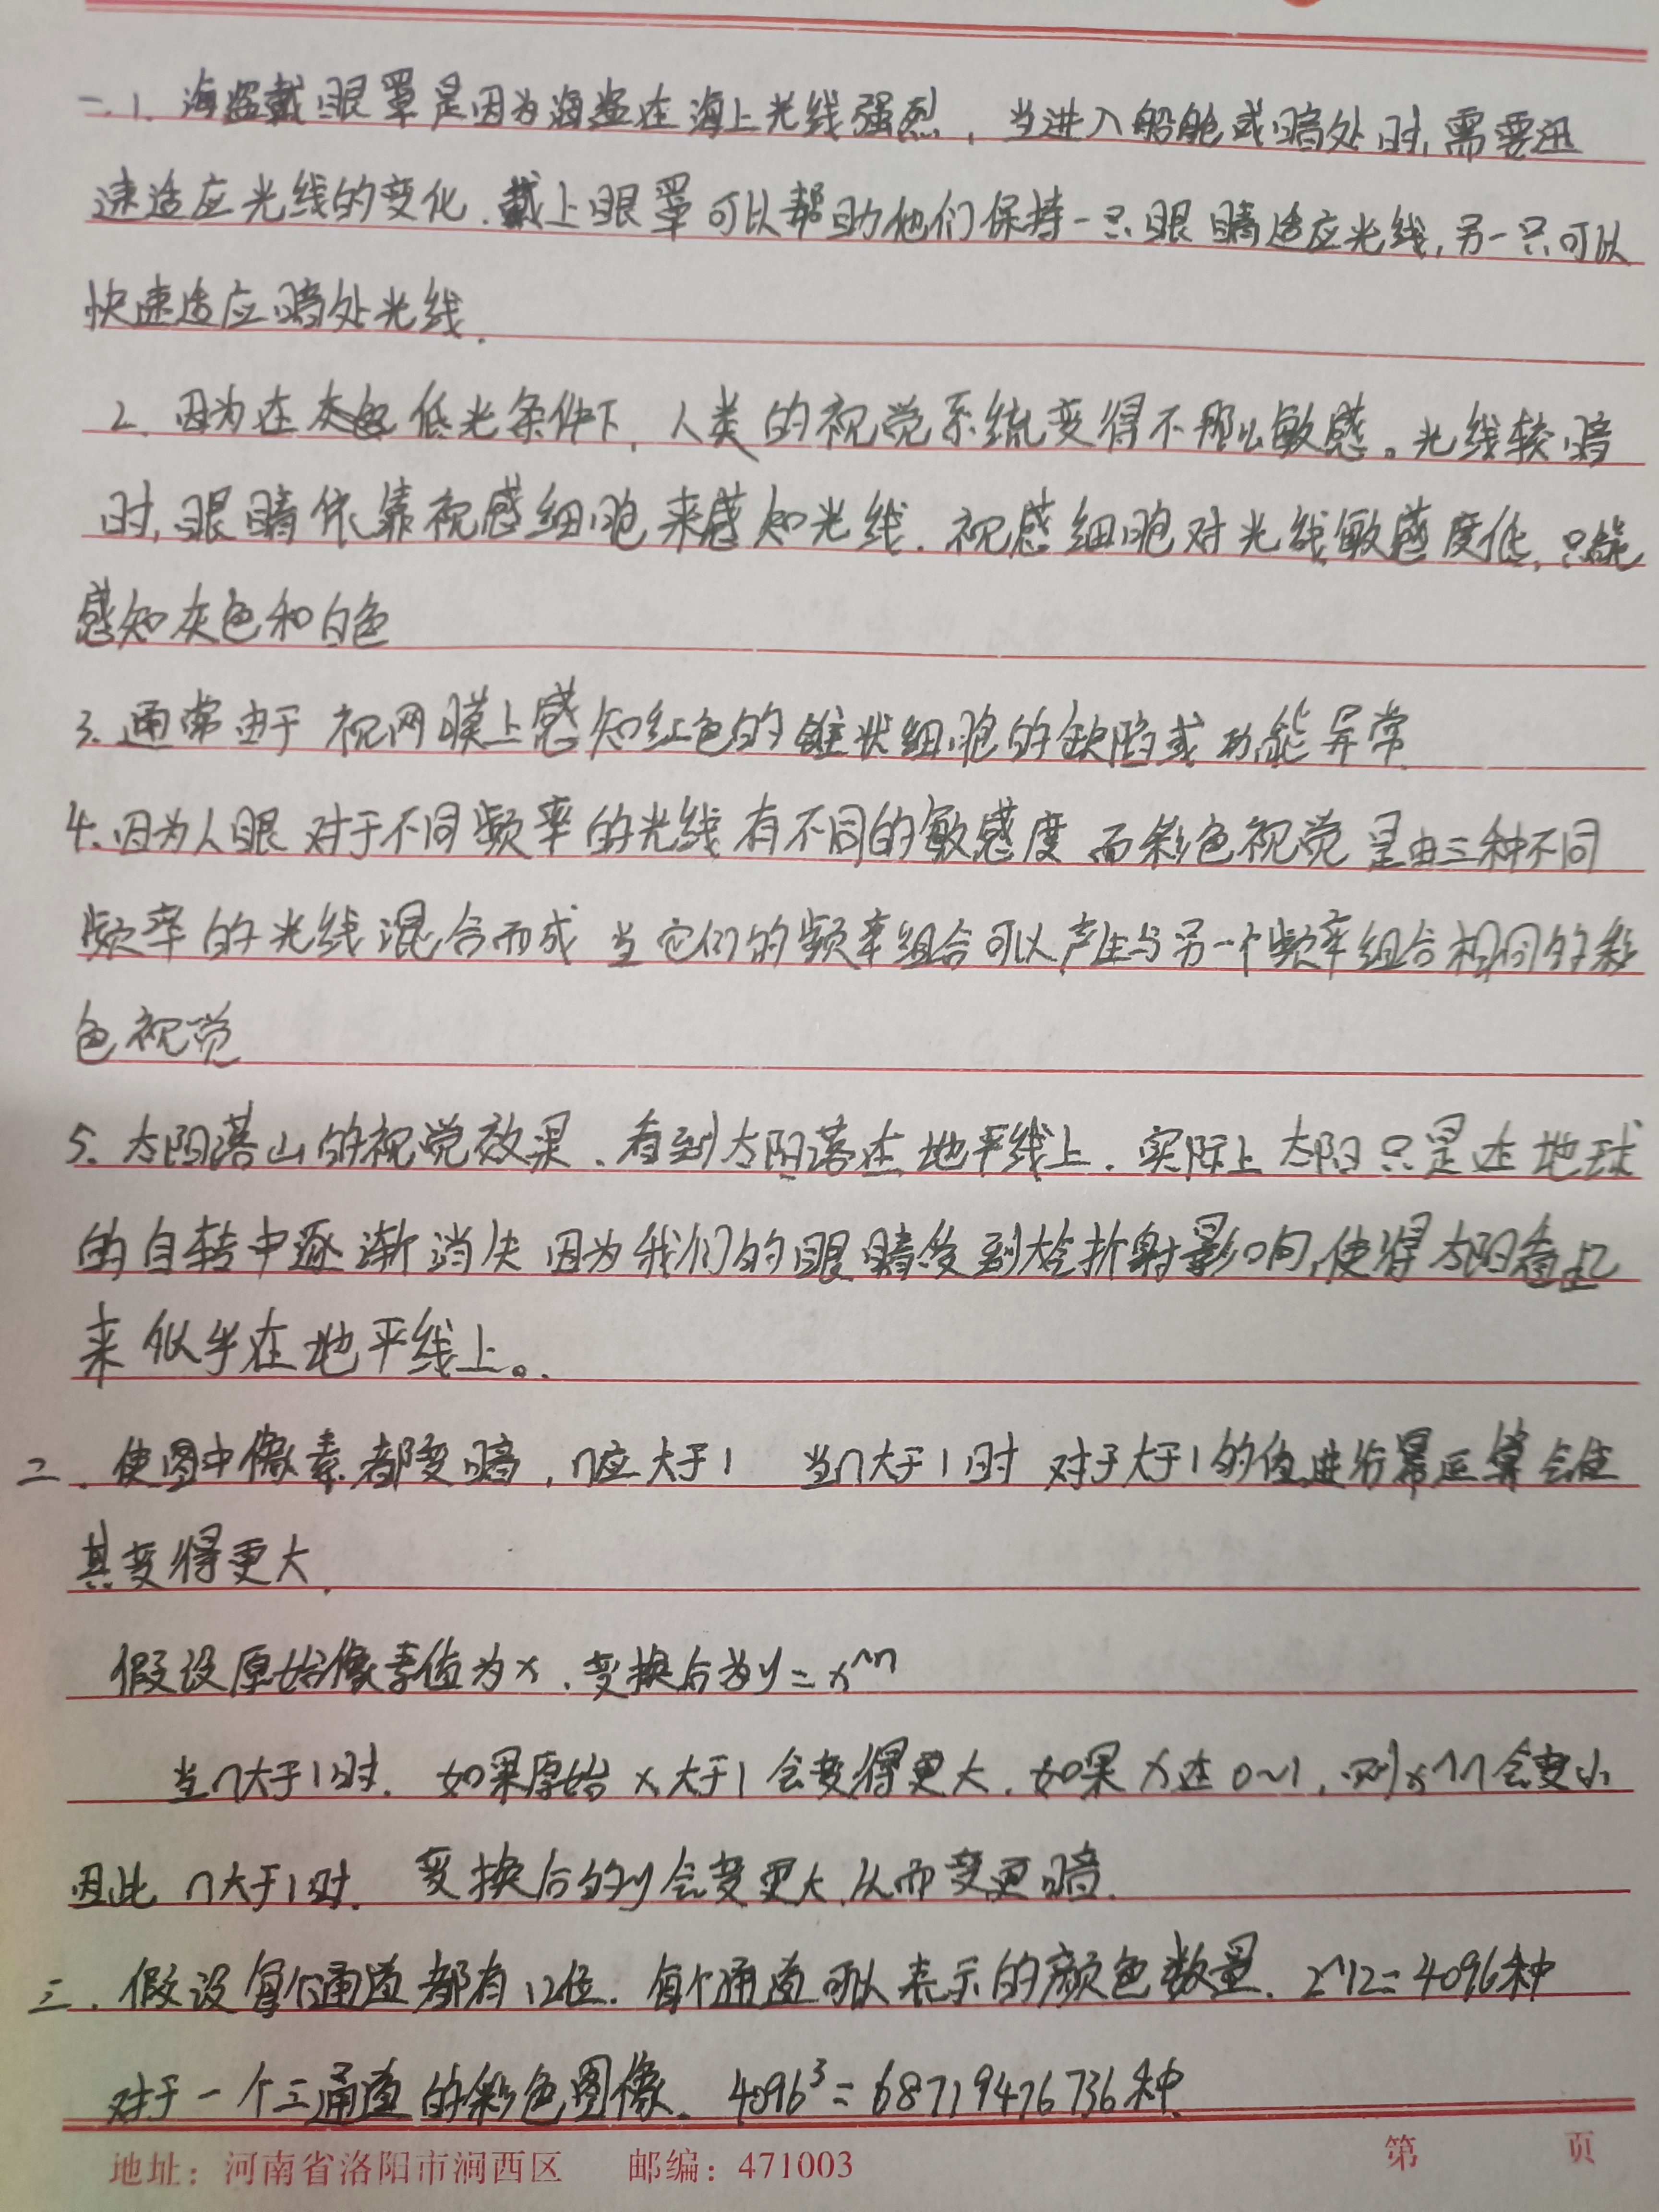 一.1. 海盗戴眼罩是因为海盗在海上光线强烈，当进入船舱或暗处时,需要迅
速适应光线的变化.戴上眼罩可以帮助他们保持一只眼睛适应光线,另一只可以
快速适应暗处光线.
2. 因为在低光条件下,人类的视觉系统变得不那么敏感。光线较暗
时,眼睛依靠视感细胞来感知光线.视感细胞对光线敏感度低,只能
感知灰色和白色
3. 通常由于视网膜上感知红色的锥状细胞的缺陷或功能异常.
4. 因为人眼对于不同频率的光线有不同的敏感度 而彩色视觉是由三种不同
频率的光线混合而成 当它们的频率组合可以产生与另一个频率组合相同的彩
色视觉
5. 太阳落山的视觉效果.看到太阳落在地平线上.实际上太阳只是在地球
的自转中逐渐消失 因为我们的眼睛受到大气折射影响,使得太阳看起
来似乎在地平线上。
二.使图中像素都变暗,n应大于1 当n大于1时 对于大于1的值进行幂运算会使
其变得更大.
假设原始像素值为x.变换后为y=x^n
当n大于1时.如果原始x大于1会变得更大.如果x在0~1,则x^n会变小
因此n大于1时.变换后的y会变更大,从而变更暗.
三.假设每个通道都有12位.每个通道可以表示的颜色数量.2^12=4096种
对于一个三通道的彩色图像.4096³=68719476736种.
地址：河南省洛阳市涧西区 邮编：471003 第 页